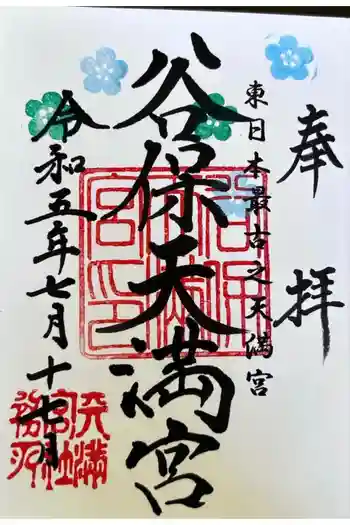 奉拝
東日本最古之天満宮
谷保天満宮
令和五年七月十七日
谷保
天満
宮印
天満
宮社
務所